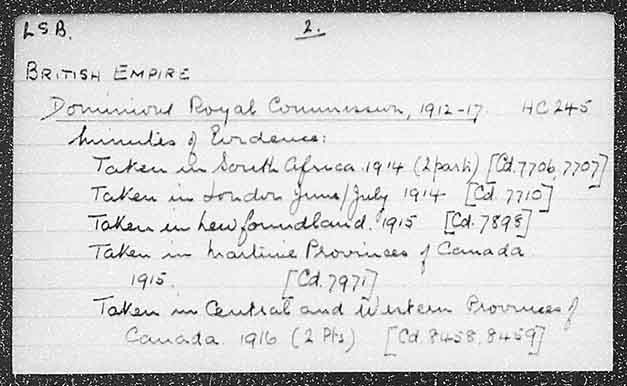 L S B. 2.
BRITISH EMPIRE
Dominions Royal Commission, 1912-17. HC 245
Minutes of Evidence:
Taken in South Africa 1914 (2 parts) [Cd. 7706, 7707]
Taken in London June/July 1914 [Cd. 7710]
Taken in Newfoundland. 1915 [Cd. 7898]
Taken in Maritime Provinces of Canada
1915. [Cd. 7971]
Taken in Central and Western Provinces of
Canada. 1916 (2 Pts) [Cd. 8458, 8459]